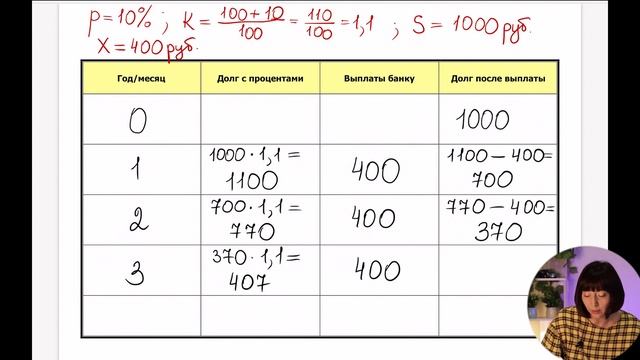 p = 10% ; K = 100 + 10 / 100 = 110 / 100 = 1,1 ; S = 1000 руб.
X = 400 руб.
Год/месяц Долг с процентами Выплаты банку Долг после выплаты
0 1000
1 1000 · 1,1 = 1100 400 1100 – 400 = 700
2 700 · 1,1 = 770 400 770 – 400 = 370
3 370 · 1,1 = 407 400